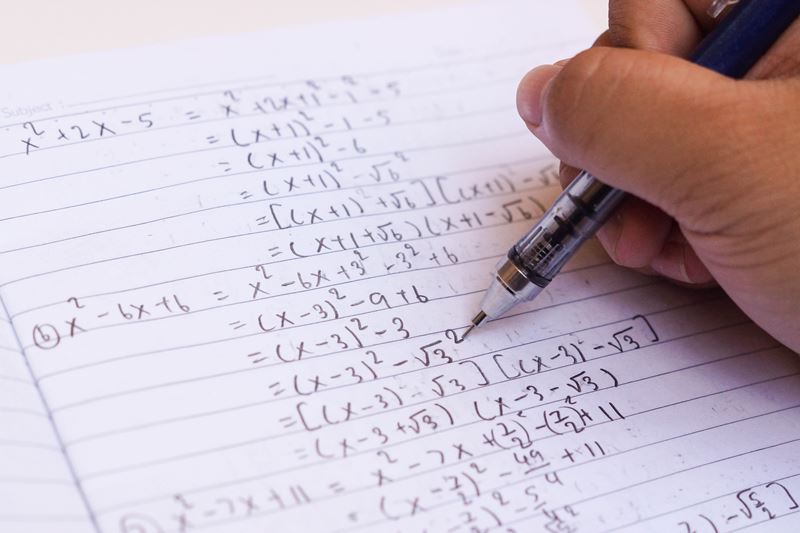 Subject :
x² + 2x - 5 = x² + 2x + 1² - 1² - 5
= (x+1)² - 1 - 5
= (x+1)² - 6
= (x+1)² - √6²
= [(x+1) + √6] [(x+1) - √6
= (x+1+√6) (x+1-√6)
(b) x² - 6x + 6 = x² - 6x + 3² - 3² + 6
= (x-3)² - 9 + 6
= (x-3)² - 3
= (x-3)² - √3²
= [(x-3) - √3] [(x-3) - √3]
= (x-3+√3) (x-3-√3)
x² - 7x + 11 = x² - 7x + (7/2)² - (7/2)² + 11
= (x-7/2)² - 49/4 + 11
(x-7/2)² - 5/4
) - √5/2]